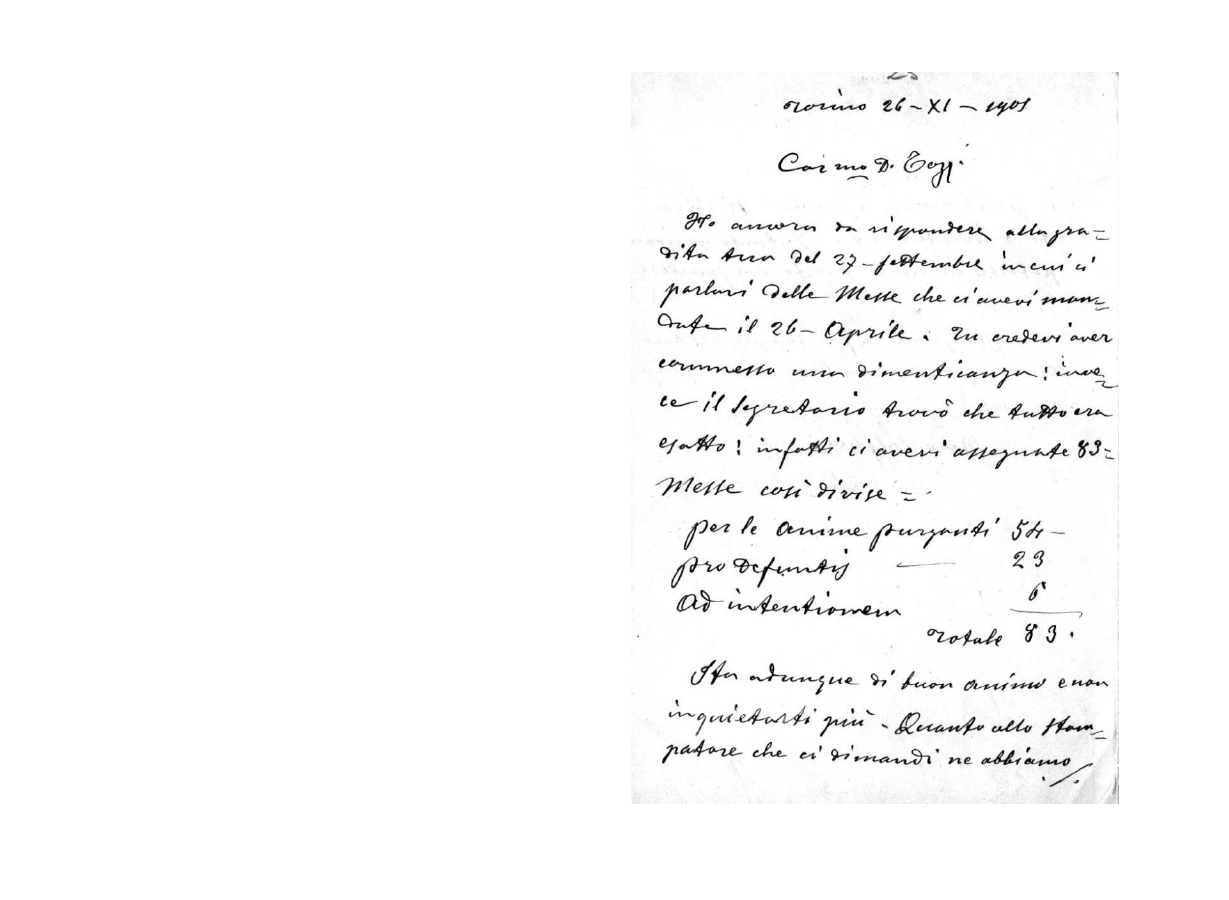 Torino 26-XI-1901
Car.mo D. Tozzi
Ho ancora da rispondere alla gra=
dita tua del 27-settembre in cui ci
parlavi delle Messe che ci avevi man=
date il 26-Aprile. Tu credevi aver
commesso una dimenticanza: inve=
ce il Segretario trovò che tutto era
esatto: infatti ci avevi assegnate 83=
Messe così divise =
per le anime purganti 54-
pro Defunctis — 23
Ad intentionem 6
Totale 83.
Sta adunque di buon animo e non
inquietarti più. Quanto allo stam=
patore che ci dimandi ne abbiamo ./.